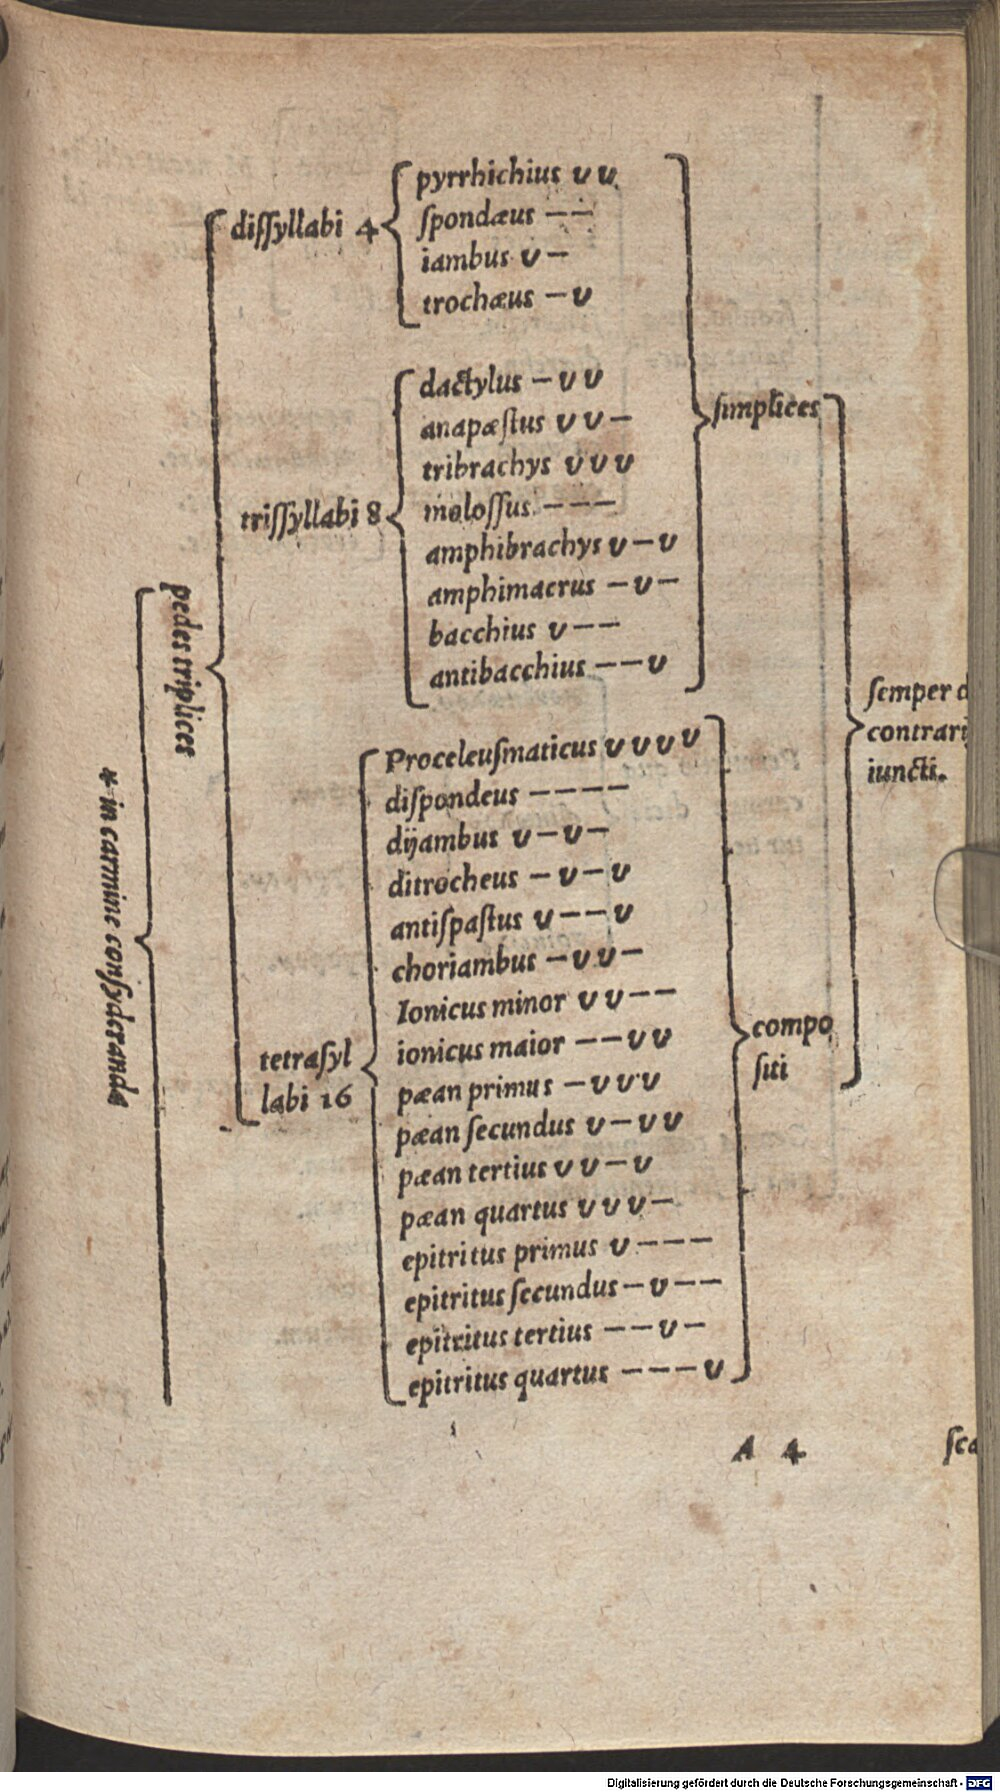 * in carmine consyderanda
pedes triplices
disſyllabi 4
pyrrhichius υ υ
ſpondæus — —
iambus υ —
trochæus — υ
trisſyllabi 8
dactylus — υ υ
anapæſtus υ υ —
tribrachys υ υ υ
moloſſus — — —
amphibrachys υ — υ
amphimacrus — υ —
bacchius υ — —
antibacchius — — υ
ſimplices
tetraſyl
labi 16
Proceleuſmaticus υ υ υ υ
diſpondeus — — — —
dijambus υ — υ —
ditrocheus — υ — υ
antiſpaſtus υ — — υ
choriambus — υ υ —
Ionicus minor υ υ — —
ionicus maior — — υ υ
pæan primus — υ υ υ
pæan ſecundus υ — υ υ
pæan tertius υ υ — υ
pæan quartus υ υ υ —
epitritus primus υ — — —
epitritus ſecundus — υ — —
epitritus tertius — — υ —
epitritus quartus — — — υ
compo
ſiti
ſemper
contrarij
iuncti.
A 4
Digitalisierung gefördert durch die Deutsche Forschungsgemeinschaft - DFG